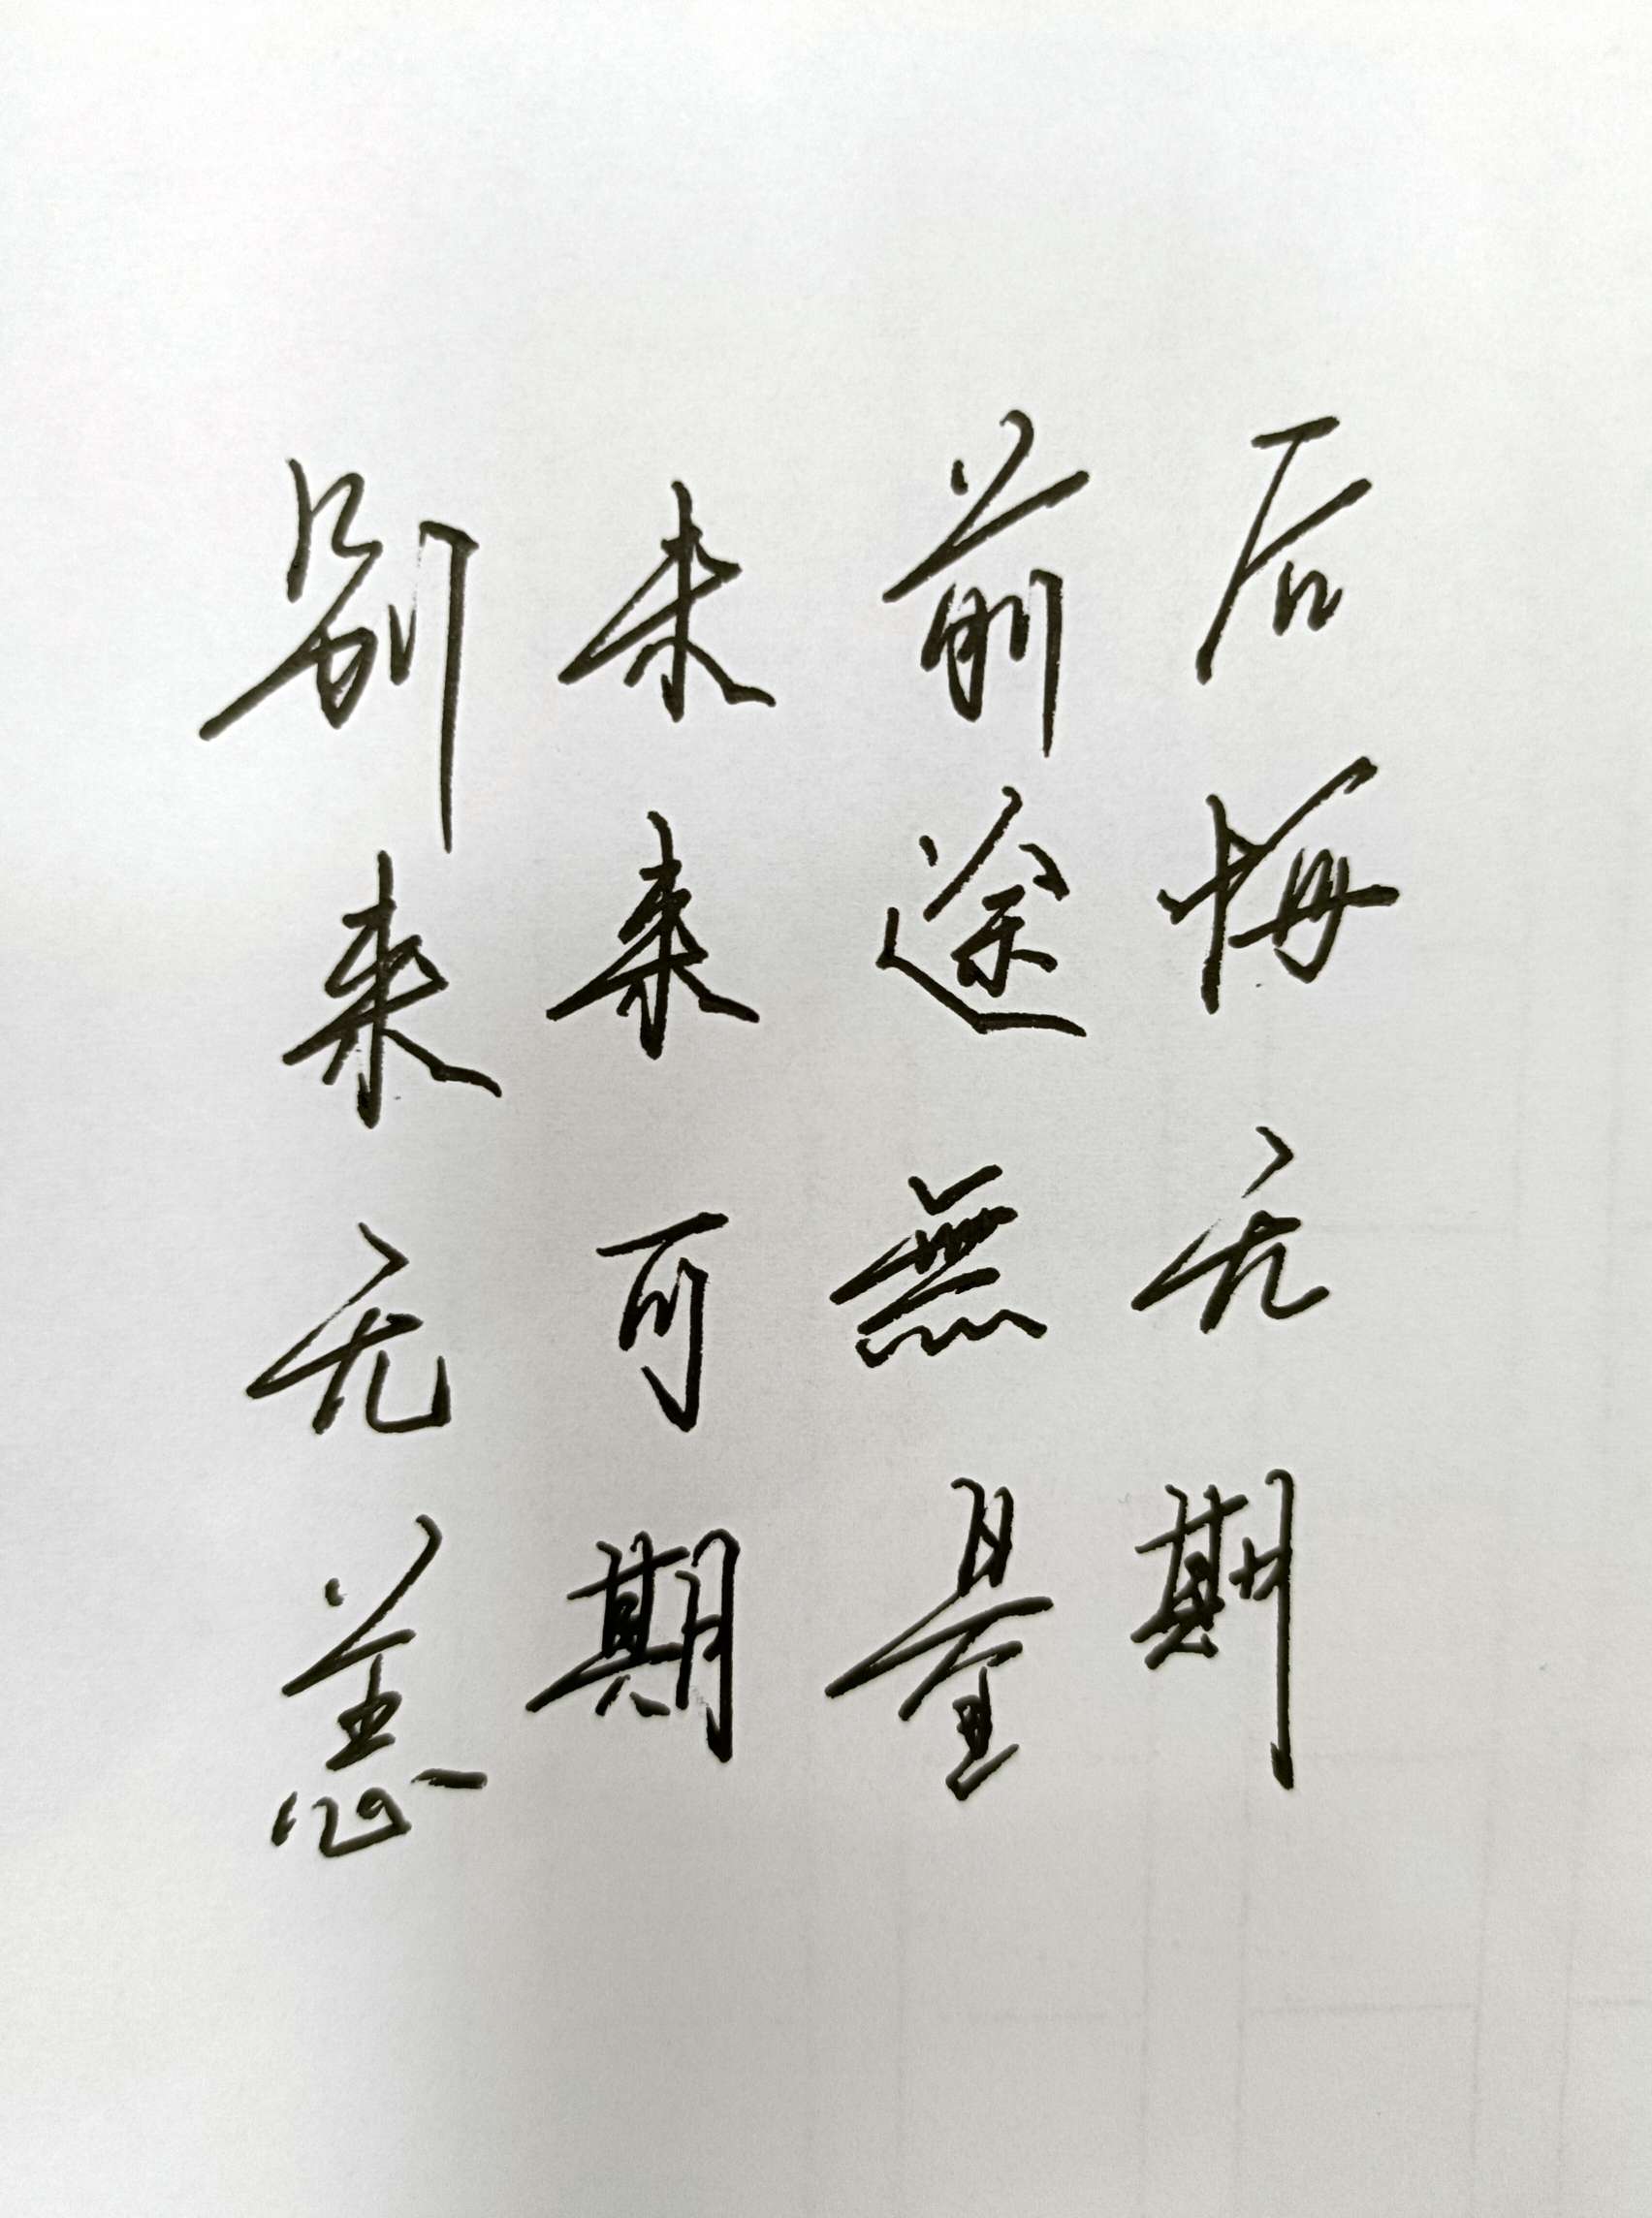 后悔无期
前途無量
未来可期
别来无恙